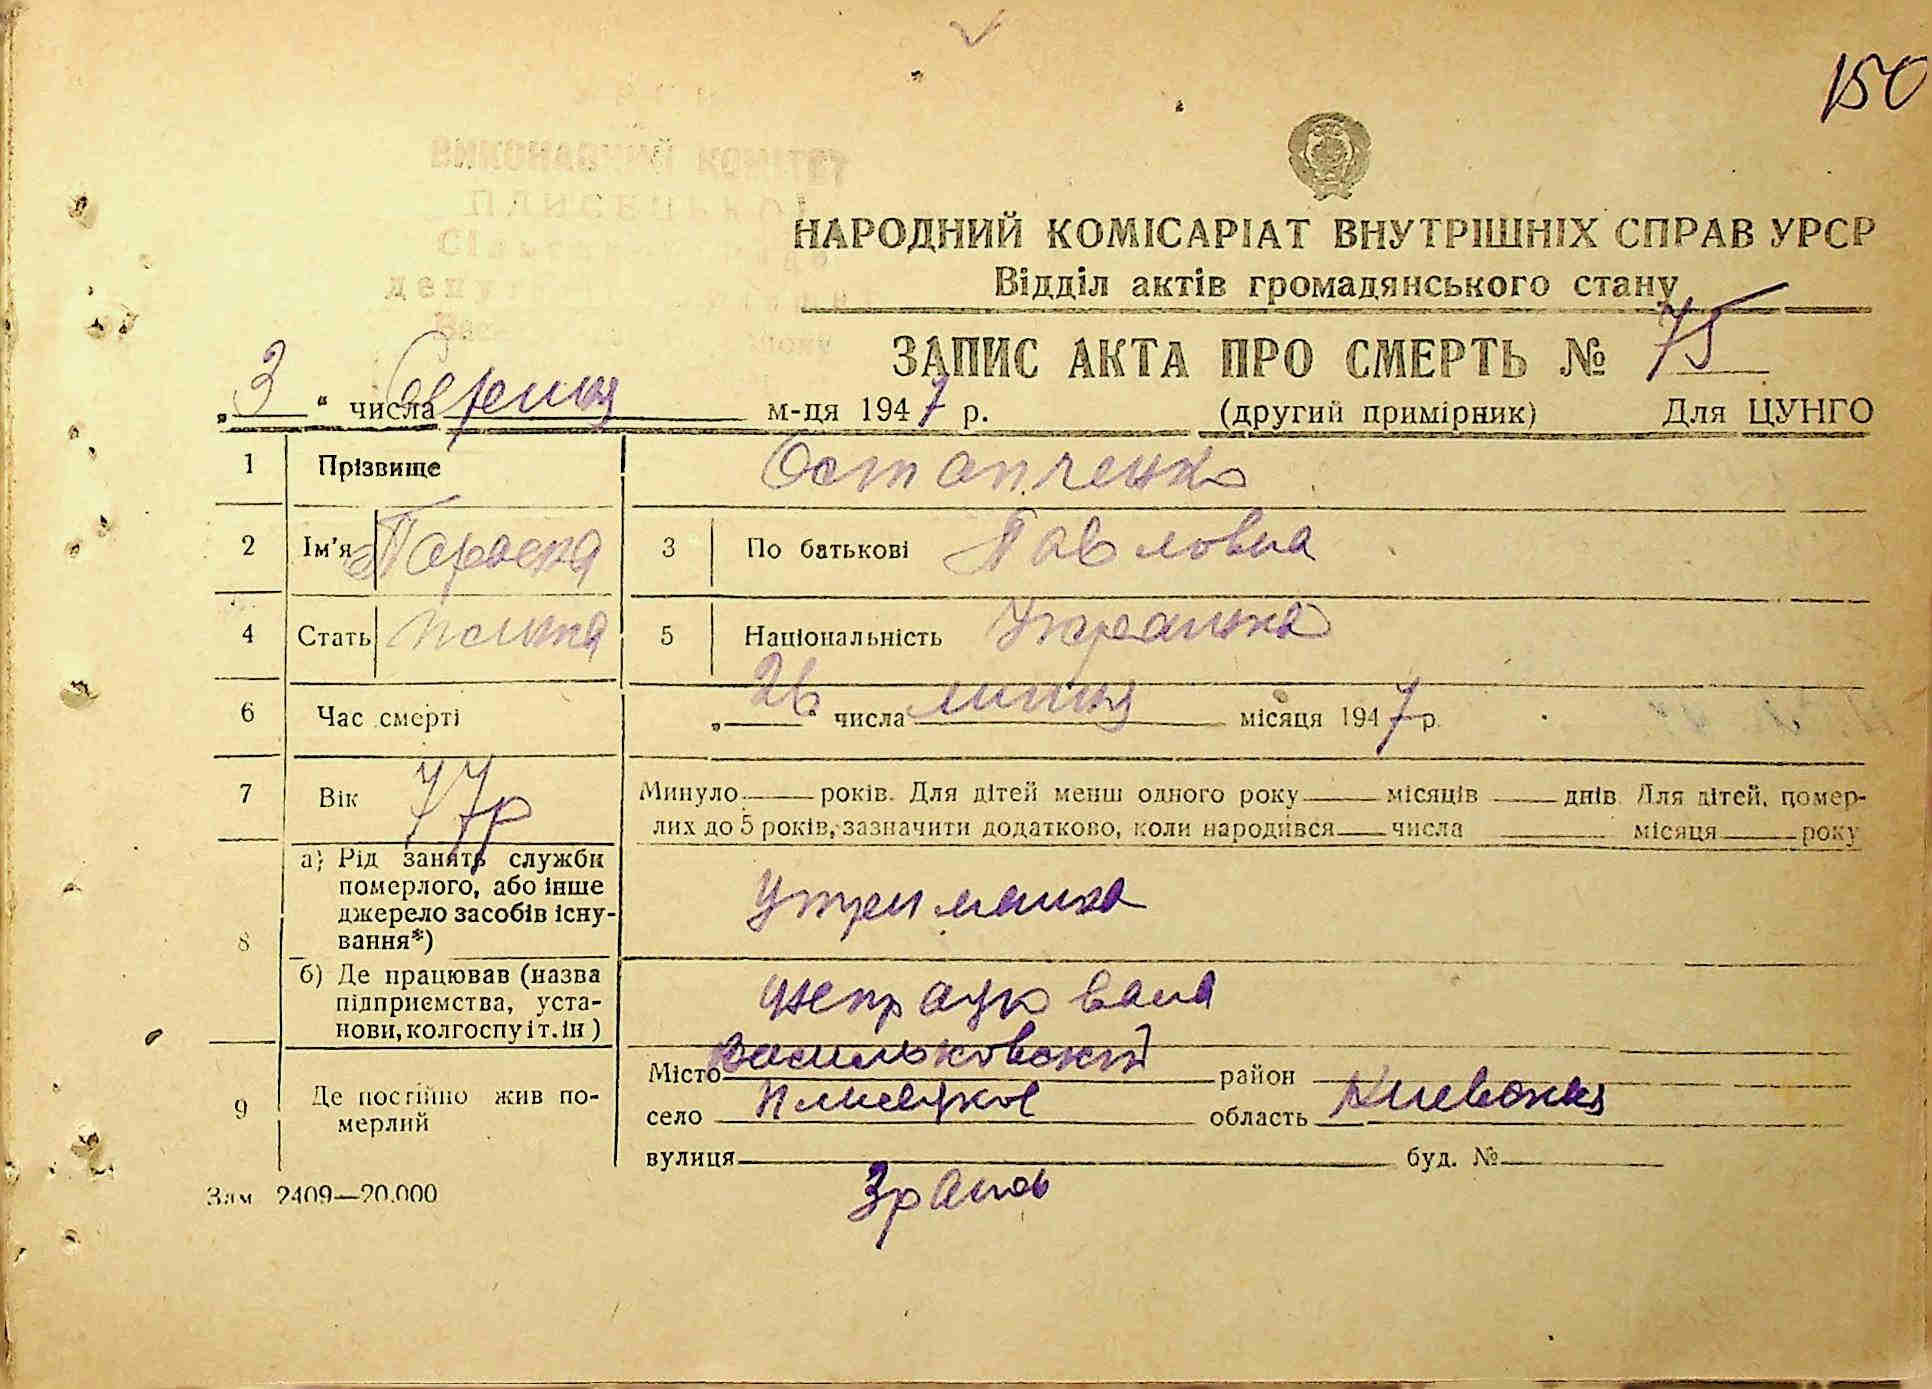 150
ВИКОНАВЧИЙ КОМІТЕТ
ПЛИСЕЦЬКОЇ
НАРОДНИЙ КОМІСАРІАТ ВНУТРІШНІХ СПРАВ УРСР
Відділ актів громадянського стану
ЗАПИС АКТА ПРО СМЕРТЬ № 75
„ 3 “ числа Серпня м-ця 1947 р. (другий примірник) Для ЦУНГО
1 Прізвище Остапченко
2 Ім'я Параска 3 По батькові Павловна
4 Стать 5 Національність Українка
6 Час смерті „ 26 числа липня місяця 1947 р.
7 Вік 77р Минуло ___ років. Для дітей менш одного року ___ місяців ___ днів. Для дітей, помер-
лих до 5 років, зазначити додатково, коли народився ___ числа ___ місяця ___ року
8 а) Рід занять служби
померлого, або інше
джерело засобів існу-
вання*)
Утриманка
б) Де працював (назва
підприємства, уста-
нови, колгоспу і т. ін )
Непрацювала
9 Де постійно жив по-
мерлий
Місто Васильковский район
село Плисецкое область Киевская
вулиця ___ буд. №
Зам 2409—20.000